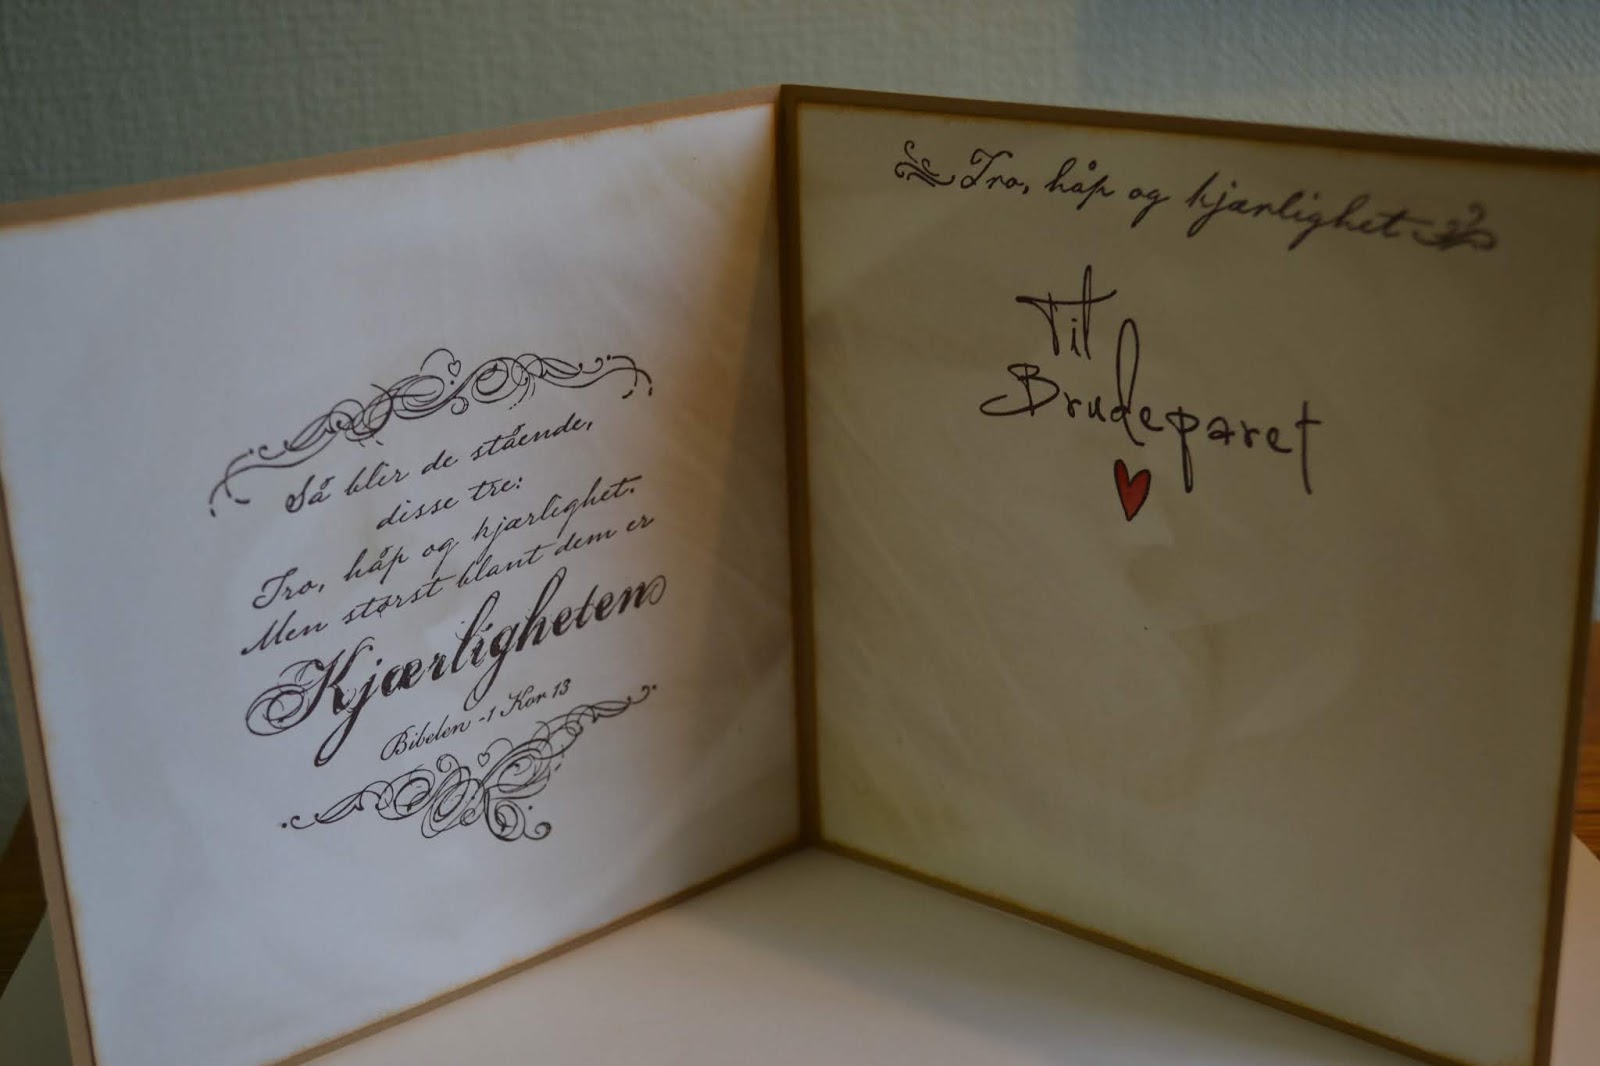 Så blir de stående,
disse tre:
Tro, håp og kjærlighet.
Men størst blant dem er
Kjærligheten
Bibelen - 1 Kor 13
Tro, håp og kjærlighet
Til
Brudeparet